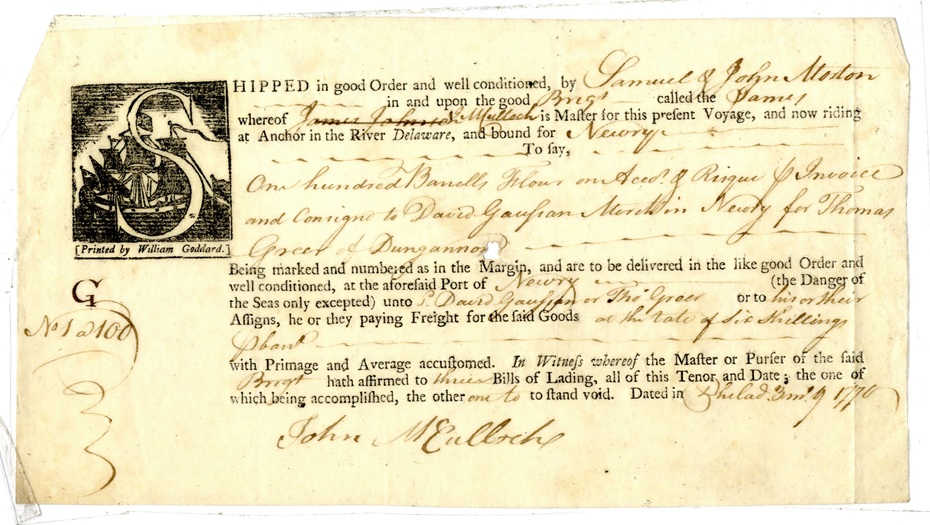 SHIPPED in good Order and well conditioned, by Samuel & John Morton
in and upon the good Brigt called the James
whereof James Johnson Jno McCulloch is Master for this present Voyage, and now riding
at Anchor in the River Delaware, and bound for Newry
To say,
One hundred Barrells Flour on Acco. & Risque ⅌ Invoice
and Consignd to David Gaussan Mercht in Newry for Thomas
Greer of Dungannon
[Printed by William Goddard.]
Being marked and numbered as in the Margin, and are to be delivered in the like good Order and
well conditioned, at the aforesaid Port of Newry (the Danger of
the Seas only excepted) unto Sd. David Gaussan or Thos Greer or to his or their
Assigns, he or they paying Freight for the said Goods at the rate of Six Shillings
⅌ barrl
G
No 1 a 100
with Primage and Average accustomed. In Witness whereof the Master or Purser of the said
Brigt hath affirmed to three Bills of Lading, all of this Tenor and Date; the one of
which being accomplished, the other one to to stand void. Dated in Philad. 3 mo. 9 1770
John McCulloch